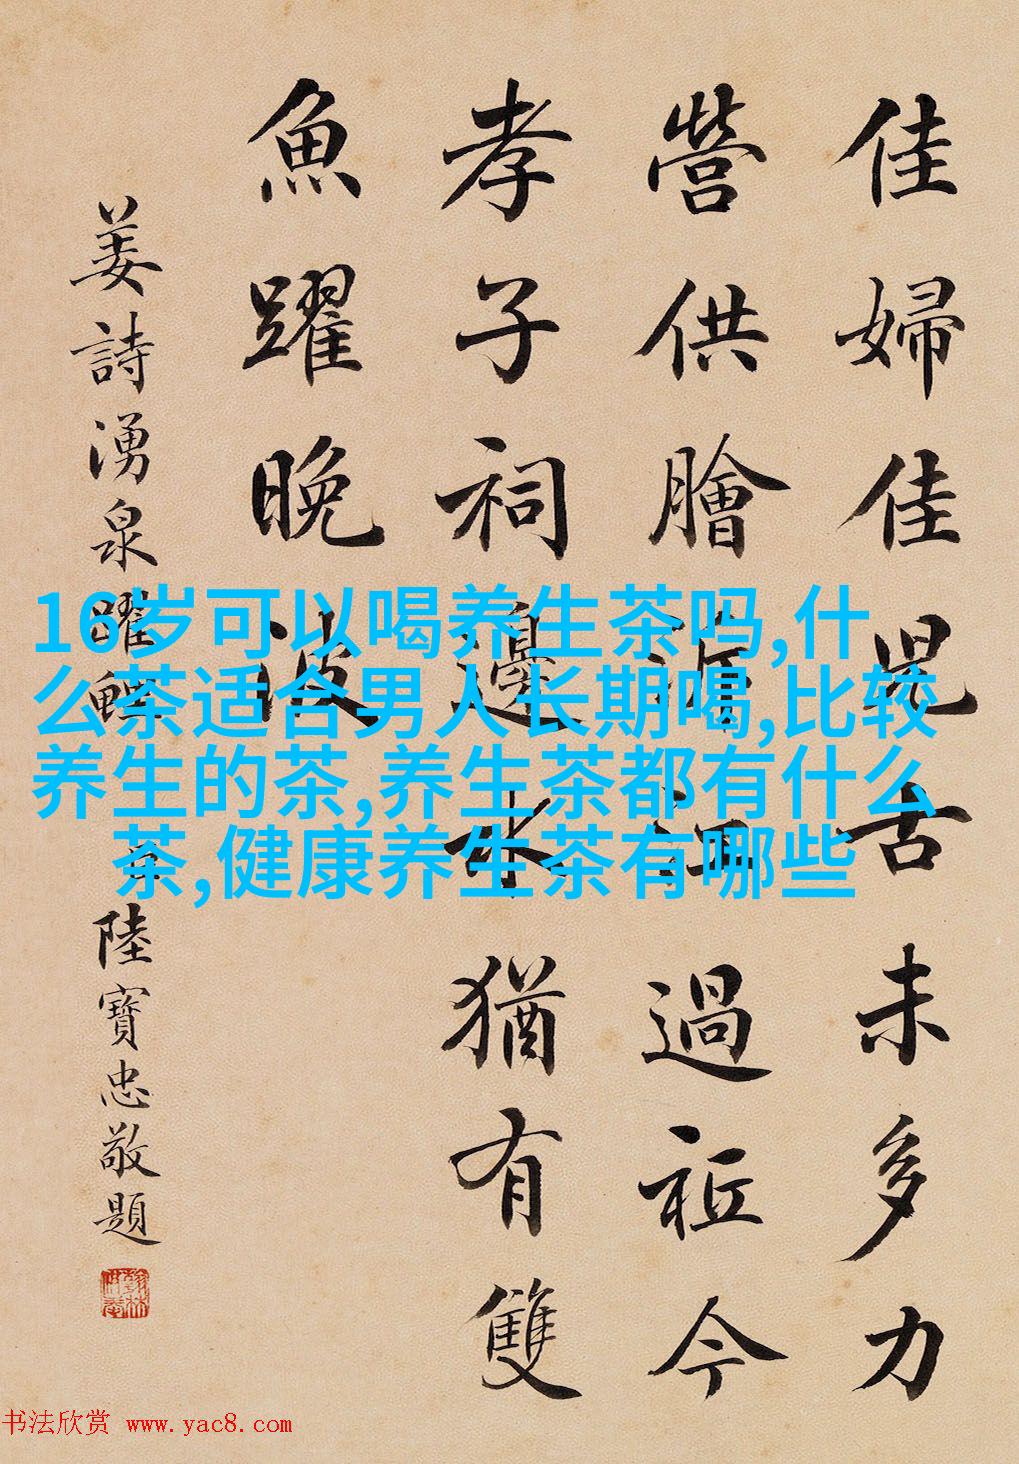 佳婦佳兒古未多力
營供膾江過祗今
孝子祠邊水猶有雙
魚躍晚波
姜詩湧泉躍鯉
臣陸寶忠敬題
16岁可以喝养生茶吗,什
么茶适合男人长期喝,比较
养生的茶,养生茶都有什么
茶,健康养生茶有哪些
书法欣赏 www.yac8.com